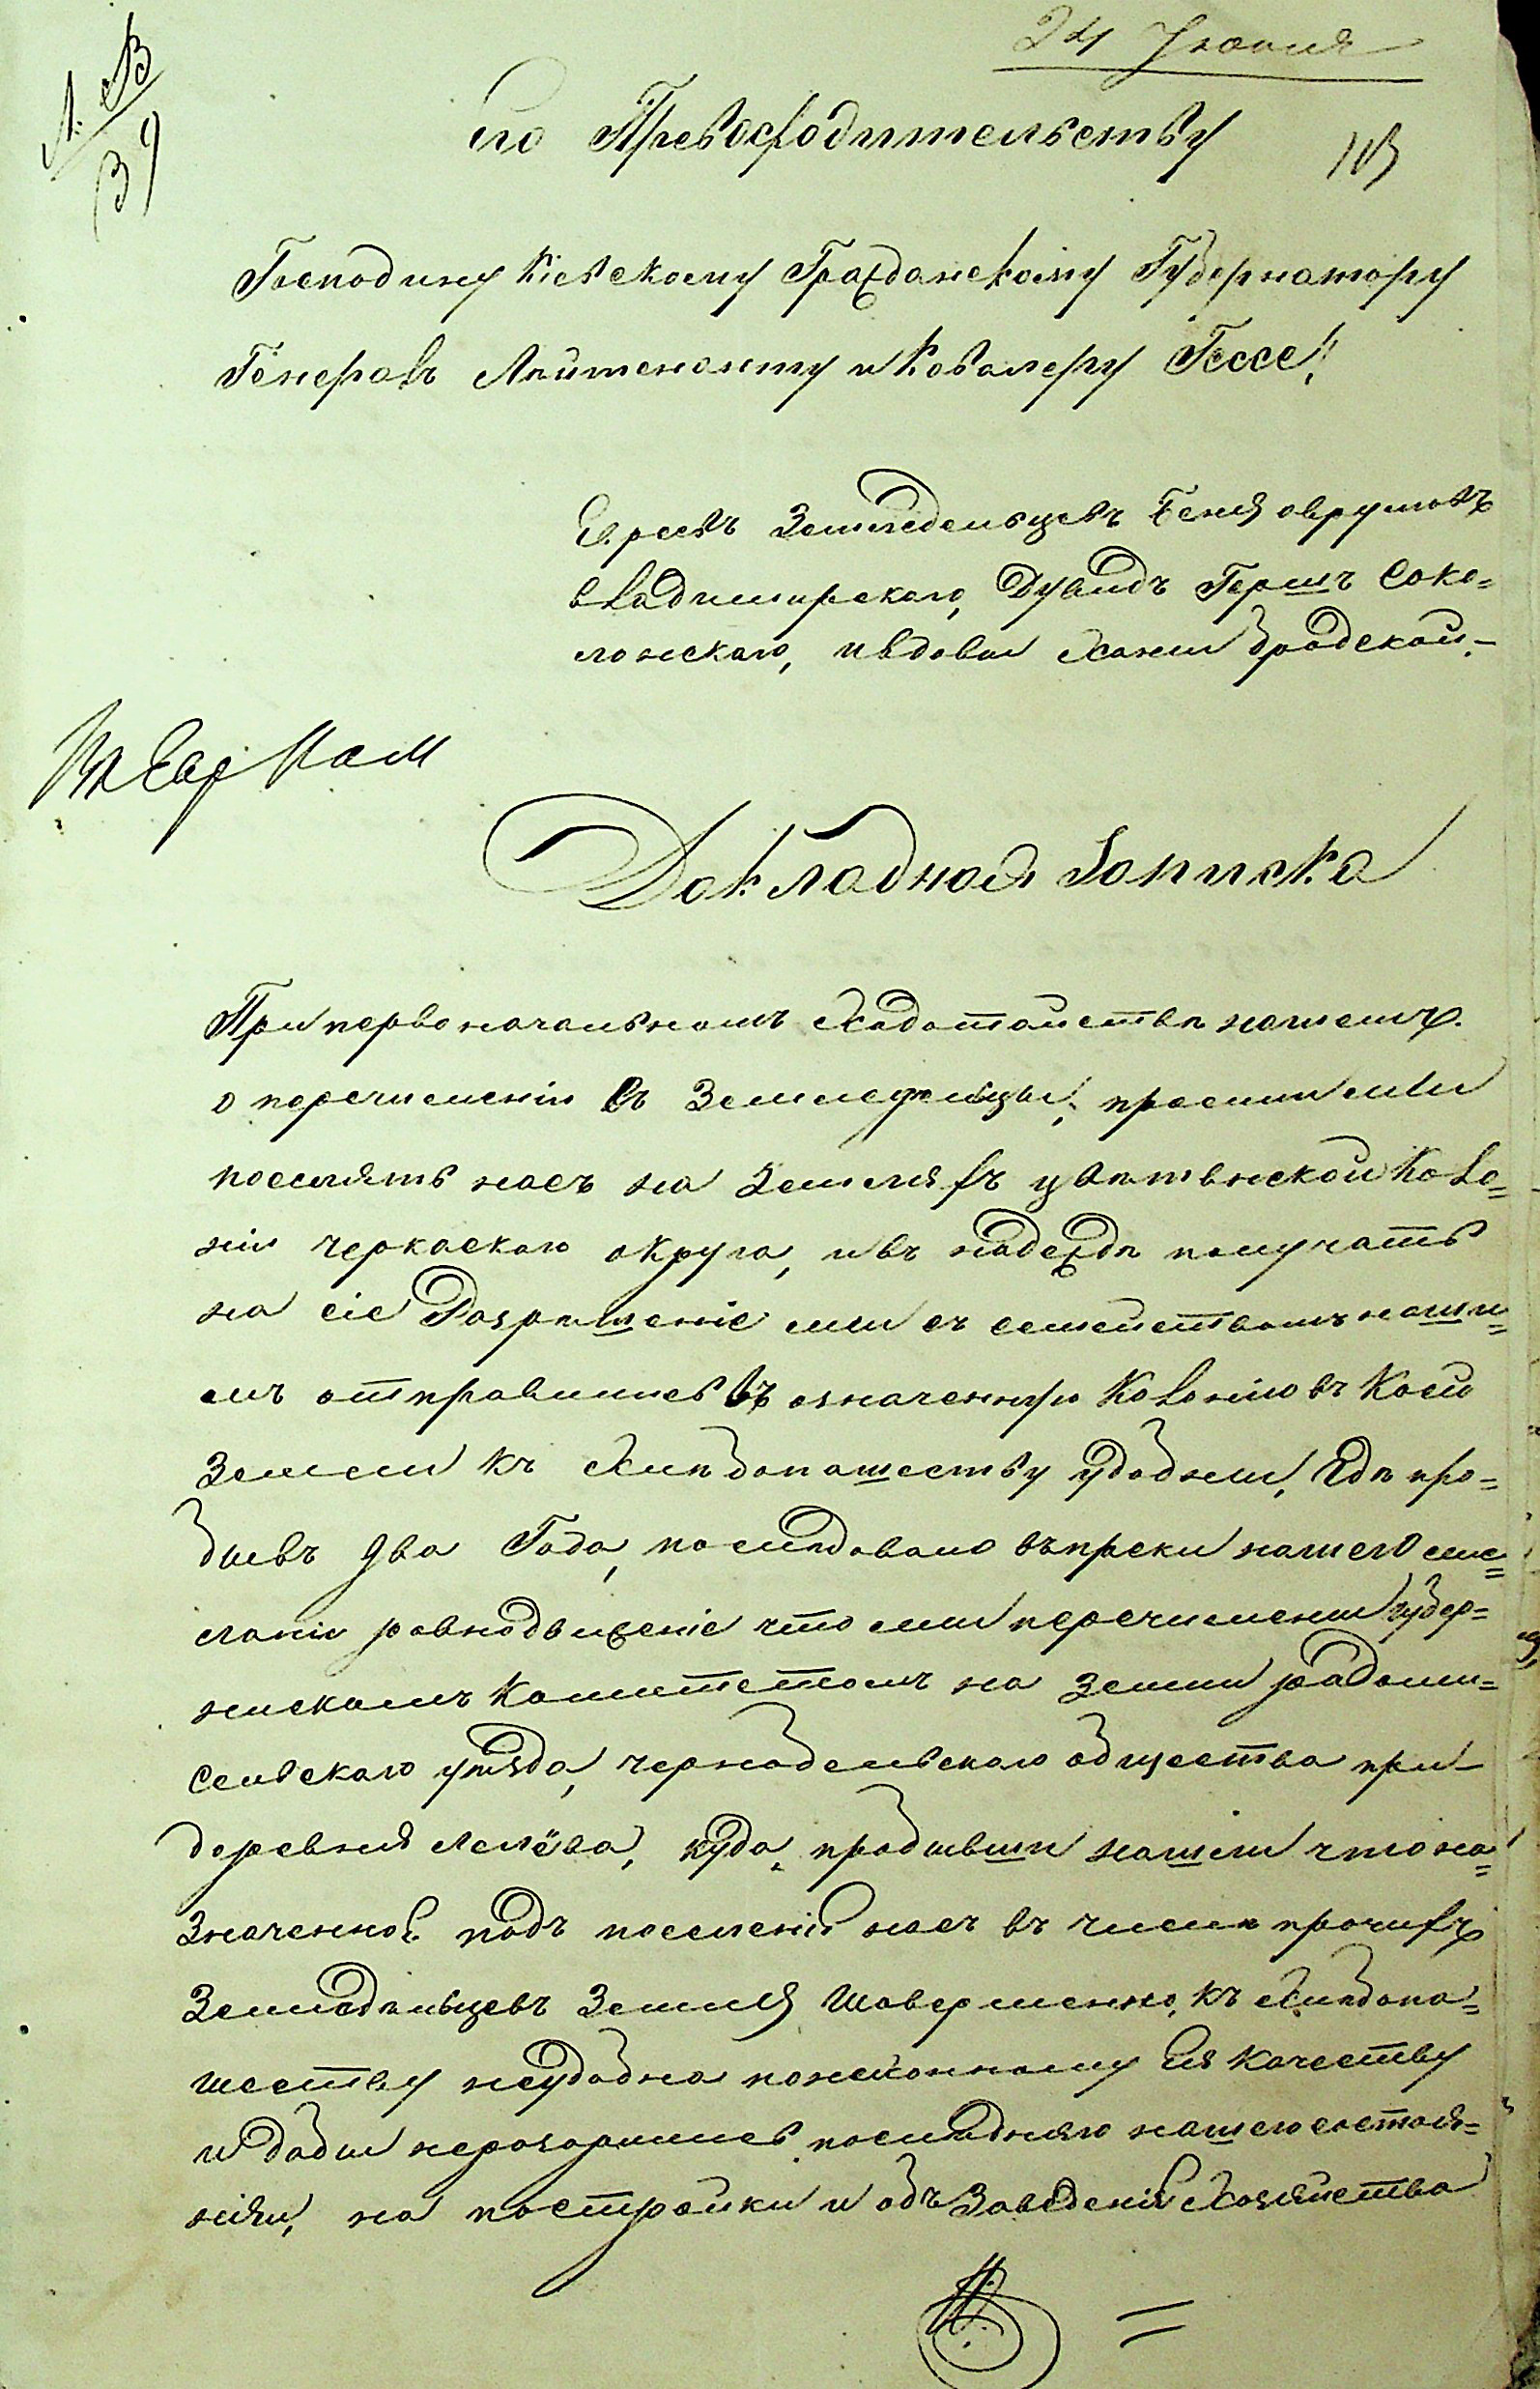 24 Іюния
Его Превосходительству
Господину Кіевскому Гражданскому Губернатору
Генералъ Лейтенанту и Кавалеру Гессе!
Евреевъ Земледельцевъ Беня аврумовъ
владимирскаго, Дувидъ Гершъ Соко=
ловскаго, и вдовы Ханы Бродской.
Докладная Записка
При первоначальномъ Ходатайстве нашемъ
о перечисленіи въ Земледельцы, просили мы
поселять насъ на Земляхъ цвѣтвнской Коло=
ніи черкаскаго округа, и въ надеждѣ получать
на сіе Разрѣшеніе мы съ семействомъ наши=
мъ отправились въ означенную Колонію въ Коей
Земли къ Хлѣбопашеству удобны, Где про=
бывъ два Года, последовало въпреки нашего же=
ланіи что мы перечислены губер=
нискимъ Комитетомъ на Земли радоми=
сельскаго уѣзда, чернобельскаго общества при
деревня Лелёва, куда прибывши нашли что на=
значенной подъ поселеній насъ въ числѣ прочихъ
Земледѣльцевъ Земля Шовершенно къ Хлѣбопа=
шеству неудобна Ея качеству
и дабы неразорились последняго нашего состоя=
нія, на постройки и обзаведеній Хозяйства